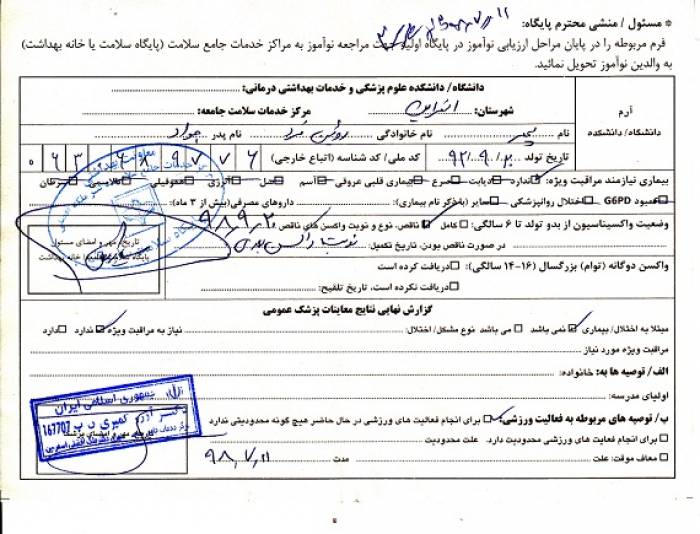 * مسئول / منشی محترم پایگاه:
فرم مربوطه را در پایان مراحل ارزیابی نوآموز در پایگاه اولیه جهت مراجعه نوآموز به مراکز خدمات جامع سلامت (پایگاه سلامت یا خانه بهداشت)
به والدین نوآموز تحویل نمائید.
آرم
دانشگاه/ دانشکده
دانشگاه/ دانشکده علوم پزشکی و خدمات بهداشتی درمانی:
شهرستان: مرکز خدمات سلامت جامعه:
نام نام خانوادگی روشن نام پدر جواد
تاریخ تولد ۹۲/۹/۲۰ کد ملی/ کد شناسه (اتباع خارجی) ۰۶۳۰۶۸۹۷۷۶
بیماری نیازمند مراقبت ویژه: ندارد دیابت صرع بیماری قلبی عروقی آسم آلرژی هموفیلی تالاسمی سرطان
کمبود G6PD اختلال روانپزشکی سایر (با ذکر نام بیماری): داروهای مصرفی (بیش از ۳ ماه):
وضعیت واکسیناسیون از بدو تولد تا ۶ سالگی: کامل ناقص، نوع و نوبت واکسن های ناقص ۹۸,۹,۲۰
در صورت ناقص بودن، تاریخ تکمیل: نوبت واکسن بعدی
تاریخ، مهر و امضای مسئول
پایگاه سلامت/ خانه بهداشت
واکسن دوگانه (توام) بزرگسال (۱۶-۱۴ سالگی): دریافت کرده است
دریافت نکرده است، تاریخ تلقیح:
گزارش نهایی نتایج معاینات پزشک عمومی
مبتلا به اختلال/ بیماری نمی باشد می باشد نوع مشکل/ اختلال: نیاز به مراقبت ویژه ندارد دارد
مراقبت ویژه مورد نیاز
الف/ توصیه ها به: خانواده:
اولیای مدرسه:
ب/ توصیه های مربوطه به فعالیت ورزشی: برای انجام فعالیت های ورزشی در حال حاضر هیچ گونه محدودیتی ندارد
برای انجام فعالیت های ورزشی محدودیت دارد. علت محدودیت
معاف موقت: علت مدت ۹۸,۷,۱۱
جمهوری اسلامی ایران
167707